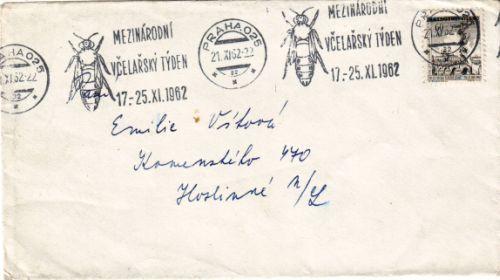 PRAHA 025
21.XI.62-22
MEZINÁRODNÍ
VČELAŘSKÝ TÝDEN
17.-25.XI.1962
PRAHA 025
21.XI.62-22
MEZINÁRODNÍ
VČELAŘSKÝ TÝDEN
17.-25.XI.1962
PRAHA 025
21.XI.62-22
Emilie Vítová
Komenského 470
Hostinné n/L